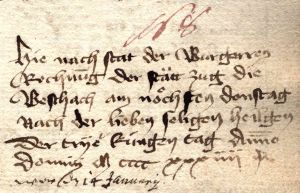 Hie nach stat der Burgerren
Rechnung der statt zug die
Beschach am nöchsten donstag
Nach der lieben heligen heiligen
Der tryer kungen tag Anno
Domini M cccc xxx iiii
14 January